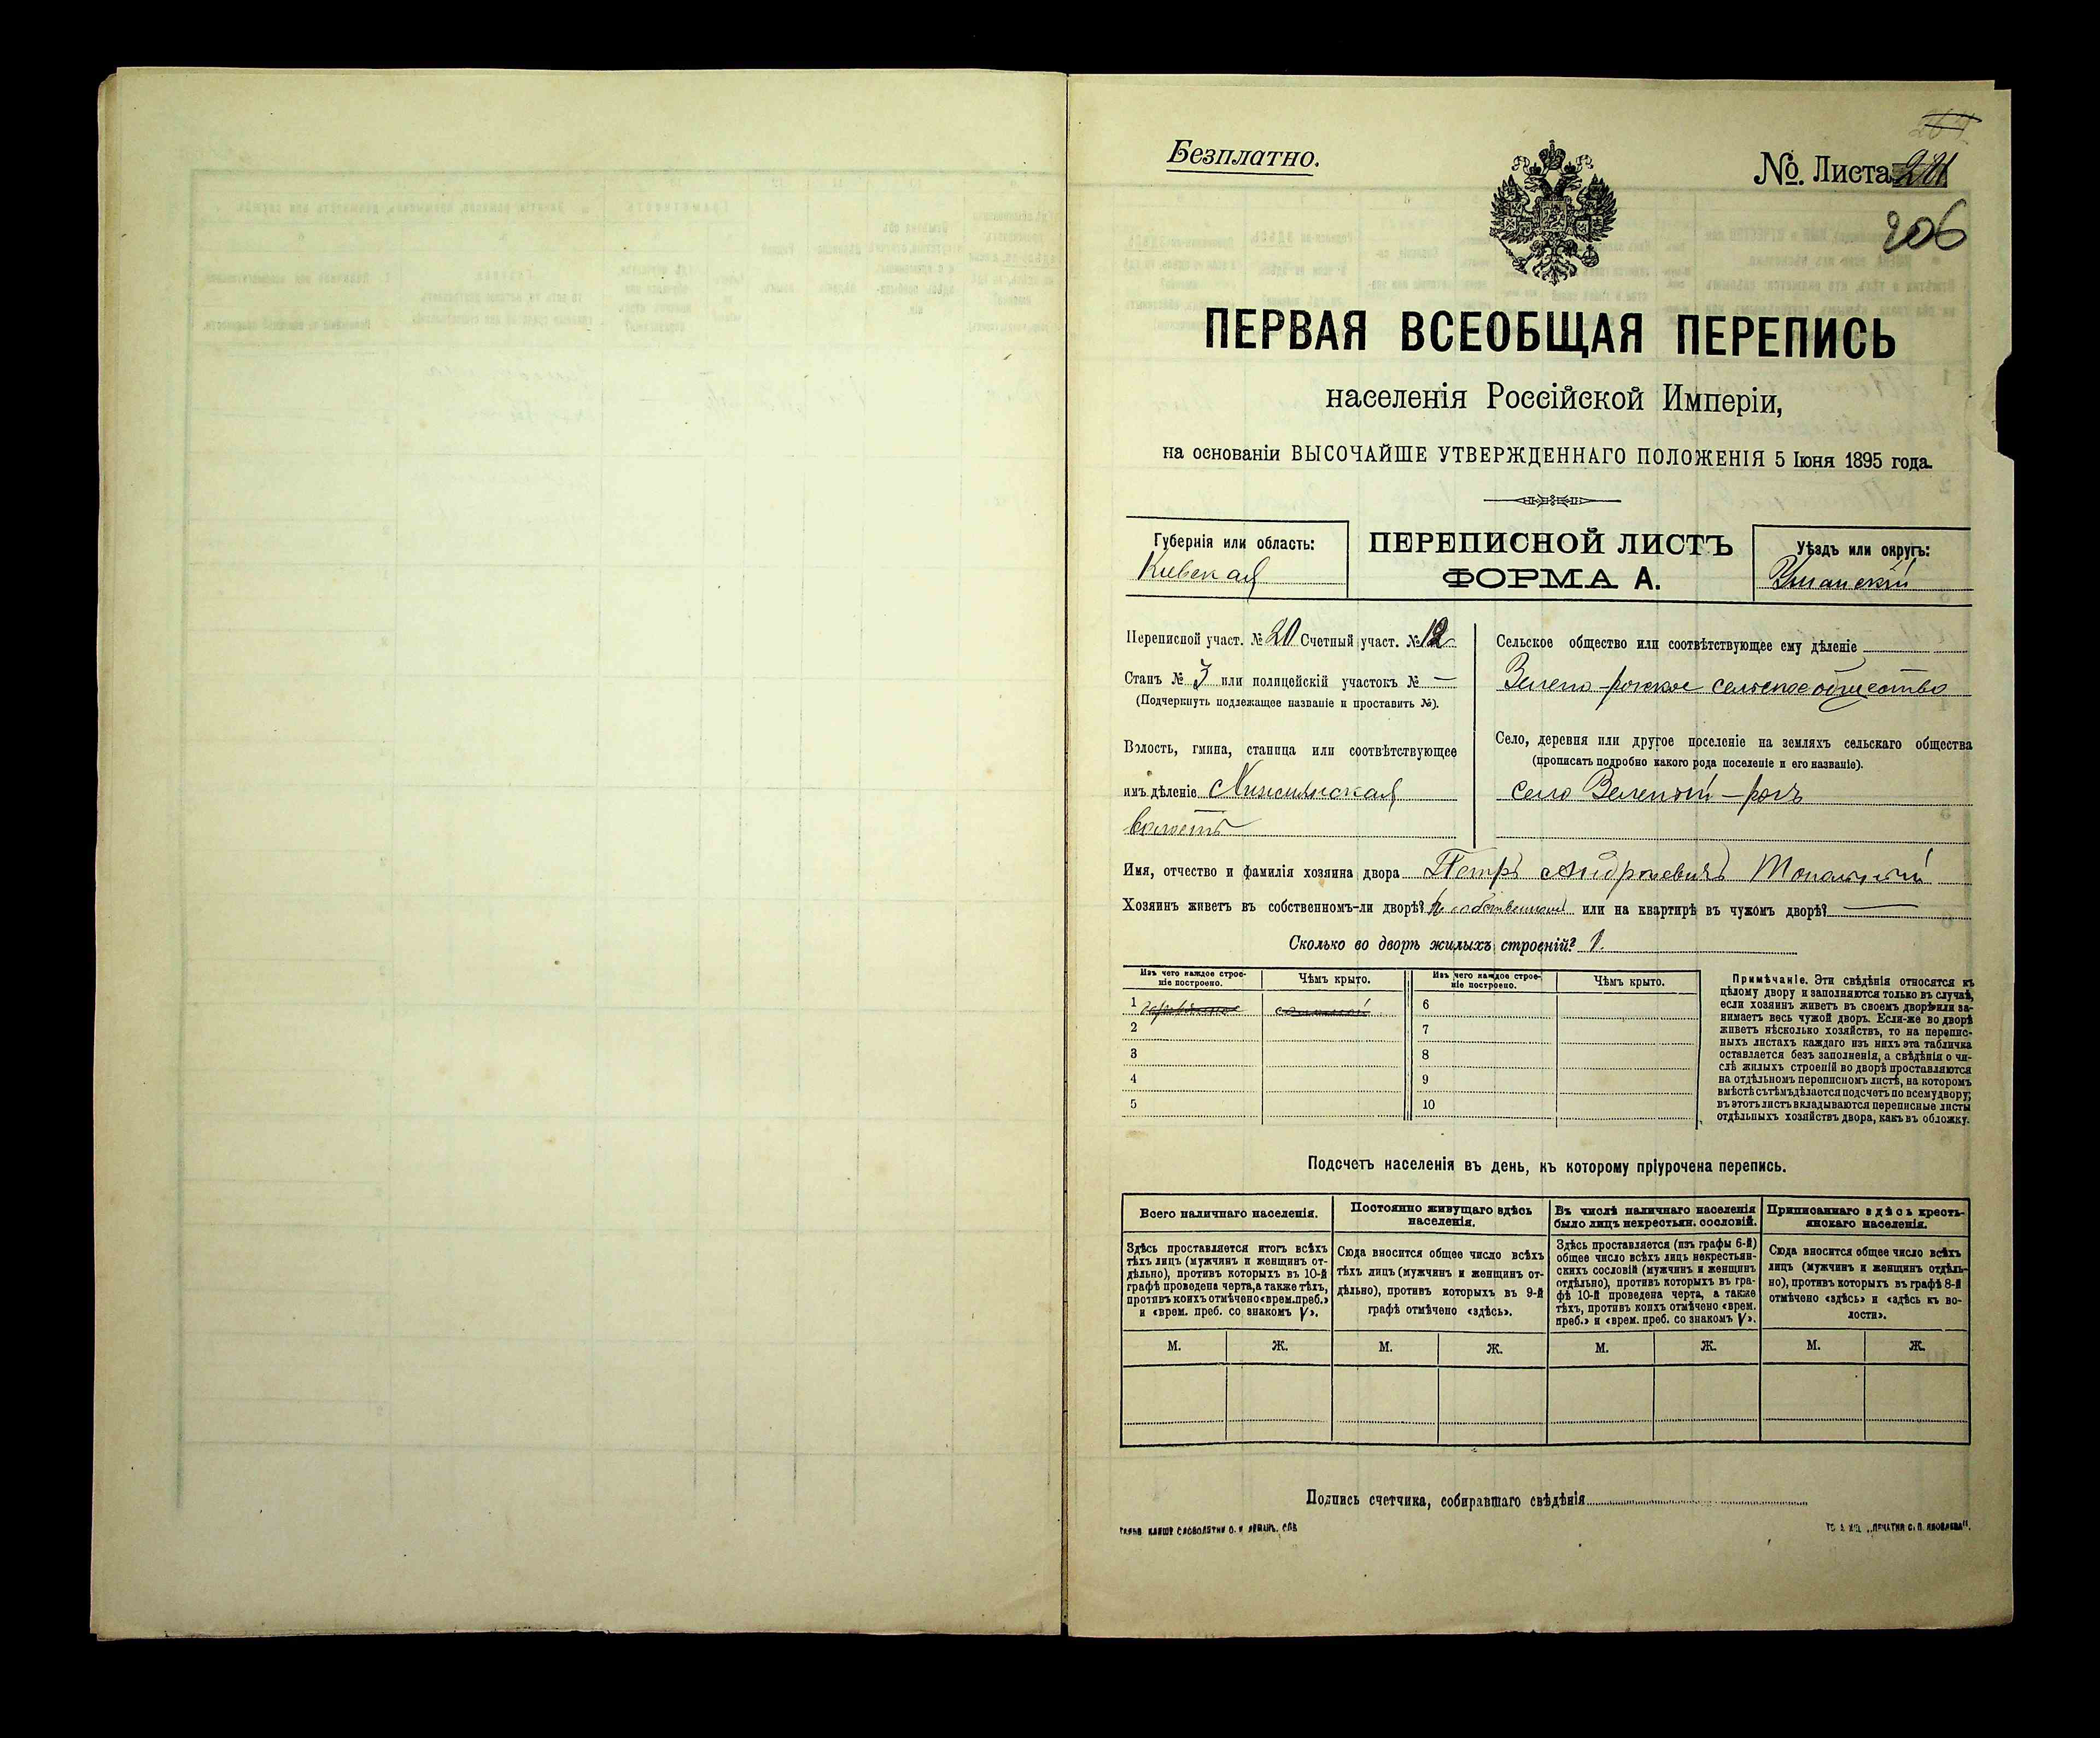 Безплатно.
№. Листа
206
ПЕРВАЯ ВСЕОБЩАЯ ПЕРЕПИСЬ
населенія Россійской Имперіи,
на основаніи ВЫСОЧАЙШЕ УТВЕРЖДЕННАГО ПОЛОЖЕНІЯ 5 Іюня 1895 года.
Губернія или область:
Кіевская
ПЕРЕПИСНОЙ ЛИСТЪ
ФОРМА А.
Уѣздъ или округъ:
Уманскій
Переписной участ. № 20 Счетный участ. № 12
Станъ № 3 или полицейскій участокъ № —
(Подчеркнуть подлежащее названіе и проставить №).
Волость, гмина, станица или соотвѣтствующее
имъ дѣленіе
волость
Сельское общество или соотвѣтствующее ему дѣленіе
Зелено-рогское сельское общество
Село, деревня или другое поселеніе на земляхъ сельскаго общества
(прописать подробно какого рода поселеніе и его названіе).
село Зеленый-рогъ
Имя, отчество и фамилія хозяина двора Петръ
Хозяинъ живетъ въ собственномъ-ли дворѣ? въ собственномъ или на квартирѣ въ чужомъ дворѣ? —
Сколько во дворѣ жилыхъ строеній? 1.
Изъ чего каждое строе-
ніе построено.
Чѣмъ крыто.
Изъ чего каждое строе-
ніе построено.
Чѣмъ крыто.
1 деревянное соломой
2
3
4
5
6
7
8
9
10
Примѣчаніе. Эти свѣдѣнія относятся къ
цѣлому двору и заполняются только въ случаѣ,
если хозяинъ живетъ въ своемъ дворѣ или за-
нимаетъ весь чужой дворъ. Если-же во дворѣ
живетъ нѣсколько хозяйствъ, то на перепис-
ныхъ листахъ каждаго изъ нихъ эта табличка
оставляется безъ заполненія, а свѣдѣнія о чи-
слѣ жилыхъ строеній во дворѣ проставляются
на отдѣльномъ переписномъ листѣ, на которомъ
вмѣстѣ съ тѣмъ дѣлается подсчетъ по всему двору;
въ этотъ листъ вкладываются переписные листы
отдѣльныхъ хозяйствъ двора, какъ въ обложку.
Подсчетъ населенія въ день, къ которому пріурочена перепись.
Всего наличнаго населенія.
Здѣсь проставляется итогъ всѣхъ
тѣхъ лицъ (мужчинъ и женщинъ от-
дѣльно), противъ которыхъ въ 10-й
графѣ проведена черта, а также тѣхъ,
противъ коихъ отмѣчено «врем. преб.»
и «врем. преб. со знакомъ V».
Постоянно живущаго здѣсь
населенія.
Сюда вносится общее число всѣхъ
тѣхъ лицъ (мужчинъ и женщинъ от-
дѣльно), противъ которыхъ въ 9-й
графѣ отмѣчено «здѣсь».
Въ числѣ наличнаго населенія
было лицъ некрестьян. сословій.
Здѣсь проставляется (изъ графы 6-й)
общее число всѣхъ лицъ некрестьян-
скихъ сословій (мужчинъ и женщинъ
отдѣльно), противъ которыхъ въ гра-
фѣ 10-й проведена черта, а также
тѣхъ, противъ коихъ отмѣчено «врем.
преб.» и «врем. преб. со знакомъ V».
Приписаннаго здѣсь кресть-
янскаго населенія.
Сюда вносится общее число всѣхъ
лицъ (мужчинъ и женщинъ отдѣль-
но), противъ которыхъ въ графѣ 8-й
отмѣчено «здѣсь» и «здѣсь къ во-
лости».
М. Ж. М. Ж. М. Ж. М. Ж.
Подпись счетчика, собиравшаго свѣдѣнія